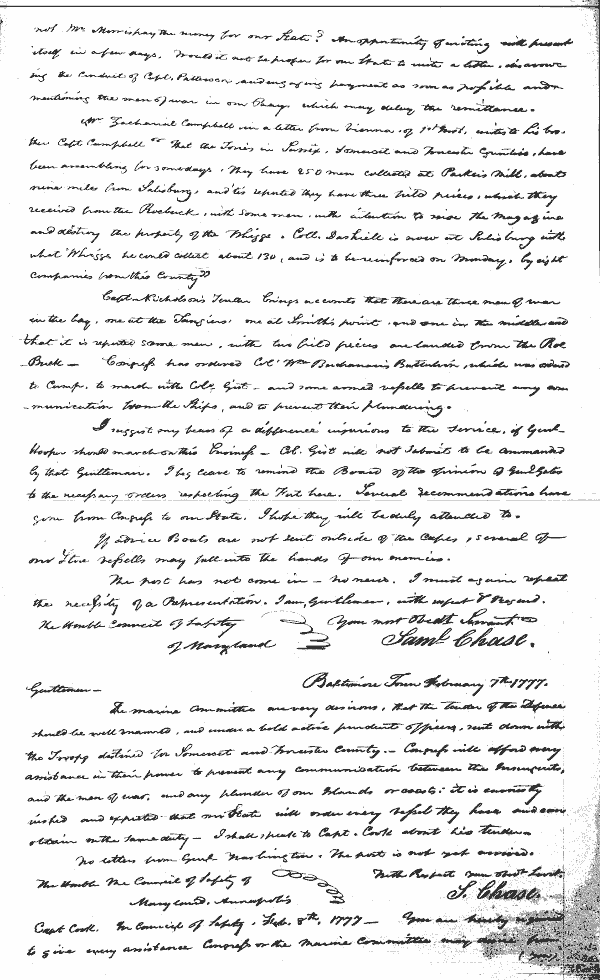 not Mr. Morris pay the money for our State? An opportunity of writing will present
itself in a few days. Would it not be proper for our State to write a letter, disavow-
ing the conduct of Capt. Patterson, and engaging payment as soon as possible and
mentioning the men of war in our Bay, which may delay the remittance.
Mr. Zachariah Campbell in a letter from Vienna, of 1st Inst, writes to his bro-
ther Capt Campbell "That the Tories in Sussex, Somerset and Worcester Counties, have
been assembling for some days. They have 250 men collected at Parker's Mill, about
nine miles from Salisbury, and 'tis reported they have three field pieces, which they
received from the Roebuck, with some men, with intention to seize the Magazine
and destroy the property of the Whiggs. Coll. Dashiell is now at Salisbury with
what Whiggs he could collect about 130, and is to be reinforced on Monday, by eight
companies from this County"
Capt. Nicholson's Tender brings accounts that there are three men of war
in the bay, one at the Tangiers' one at Smith's point, and one in the middle and
that it is reputed some men, with two field pieces are landed from the Roe
Buck — Congress has ordered Col: Wm Buchanan's Battalion, which was ordered
to Camp, to march with Colo. Gist — and some armed vessells to prevent any com
-munication from the Ships, and to prevent their plundering.
I suggest my fears of a difference injurious to the service, if Genl.
Hooper should march on this Business — Col. Gist will not submit to be commanded
by that Gentleman. I beg leave to remind the Board of the opinion of Genl Gates
to the necessary orders respecting the Fort here. Several recommendations have
gone from Congress to our State. I hope they will be duly attended to.
If advice Boats are not sent outside of the Capes, several of
our State vessells may fall into the hands of our enemies.
The post has not come in — no news. I must again repeat
the necessity of a Representation. I am, Gentlemen, with respect & Regard.
The Honble Council of Safety Your most Obedt Servant
of Maryland Saml. Chase.
Baltimore Town February 7th 1777.
Gentlemen —
The marine Committee are very desirous, that the tender of the Defence
should be well manned, and under a bold active prudent officer, sent down with
the Troops destined for Somerset and Worcester County — Congress will afford every
assistance in their power to prevent any communication between the Insurgents,
and the men of war, and any plunder of our Islands or coasts: it is earnestly
wished and expected that our State will order every vessel they have and can
obtain on the same duty — I shall speak to Capt. Cook about his tender.
No letters from Genl Washington. The post is not yet arrived.
The Honble The Council of Safety of With Respect Your Obdt Servt.
Maryland, Annapolis S. Chase.
Capt Cook. In Council of Safety. Feb. 8th, 1777 — You are hereby required
to give every assistance Congress or the Marine Committee may desire from
(you)